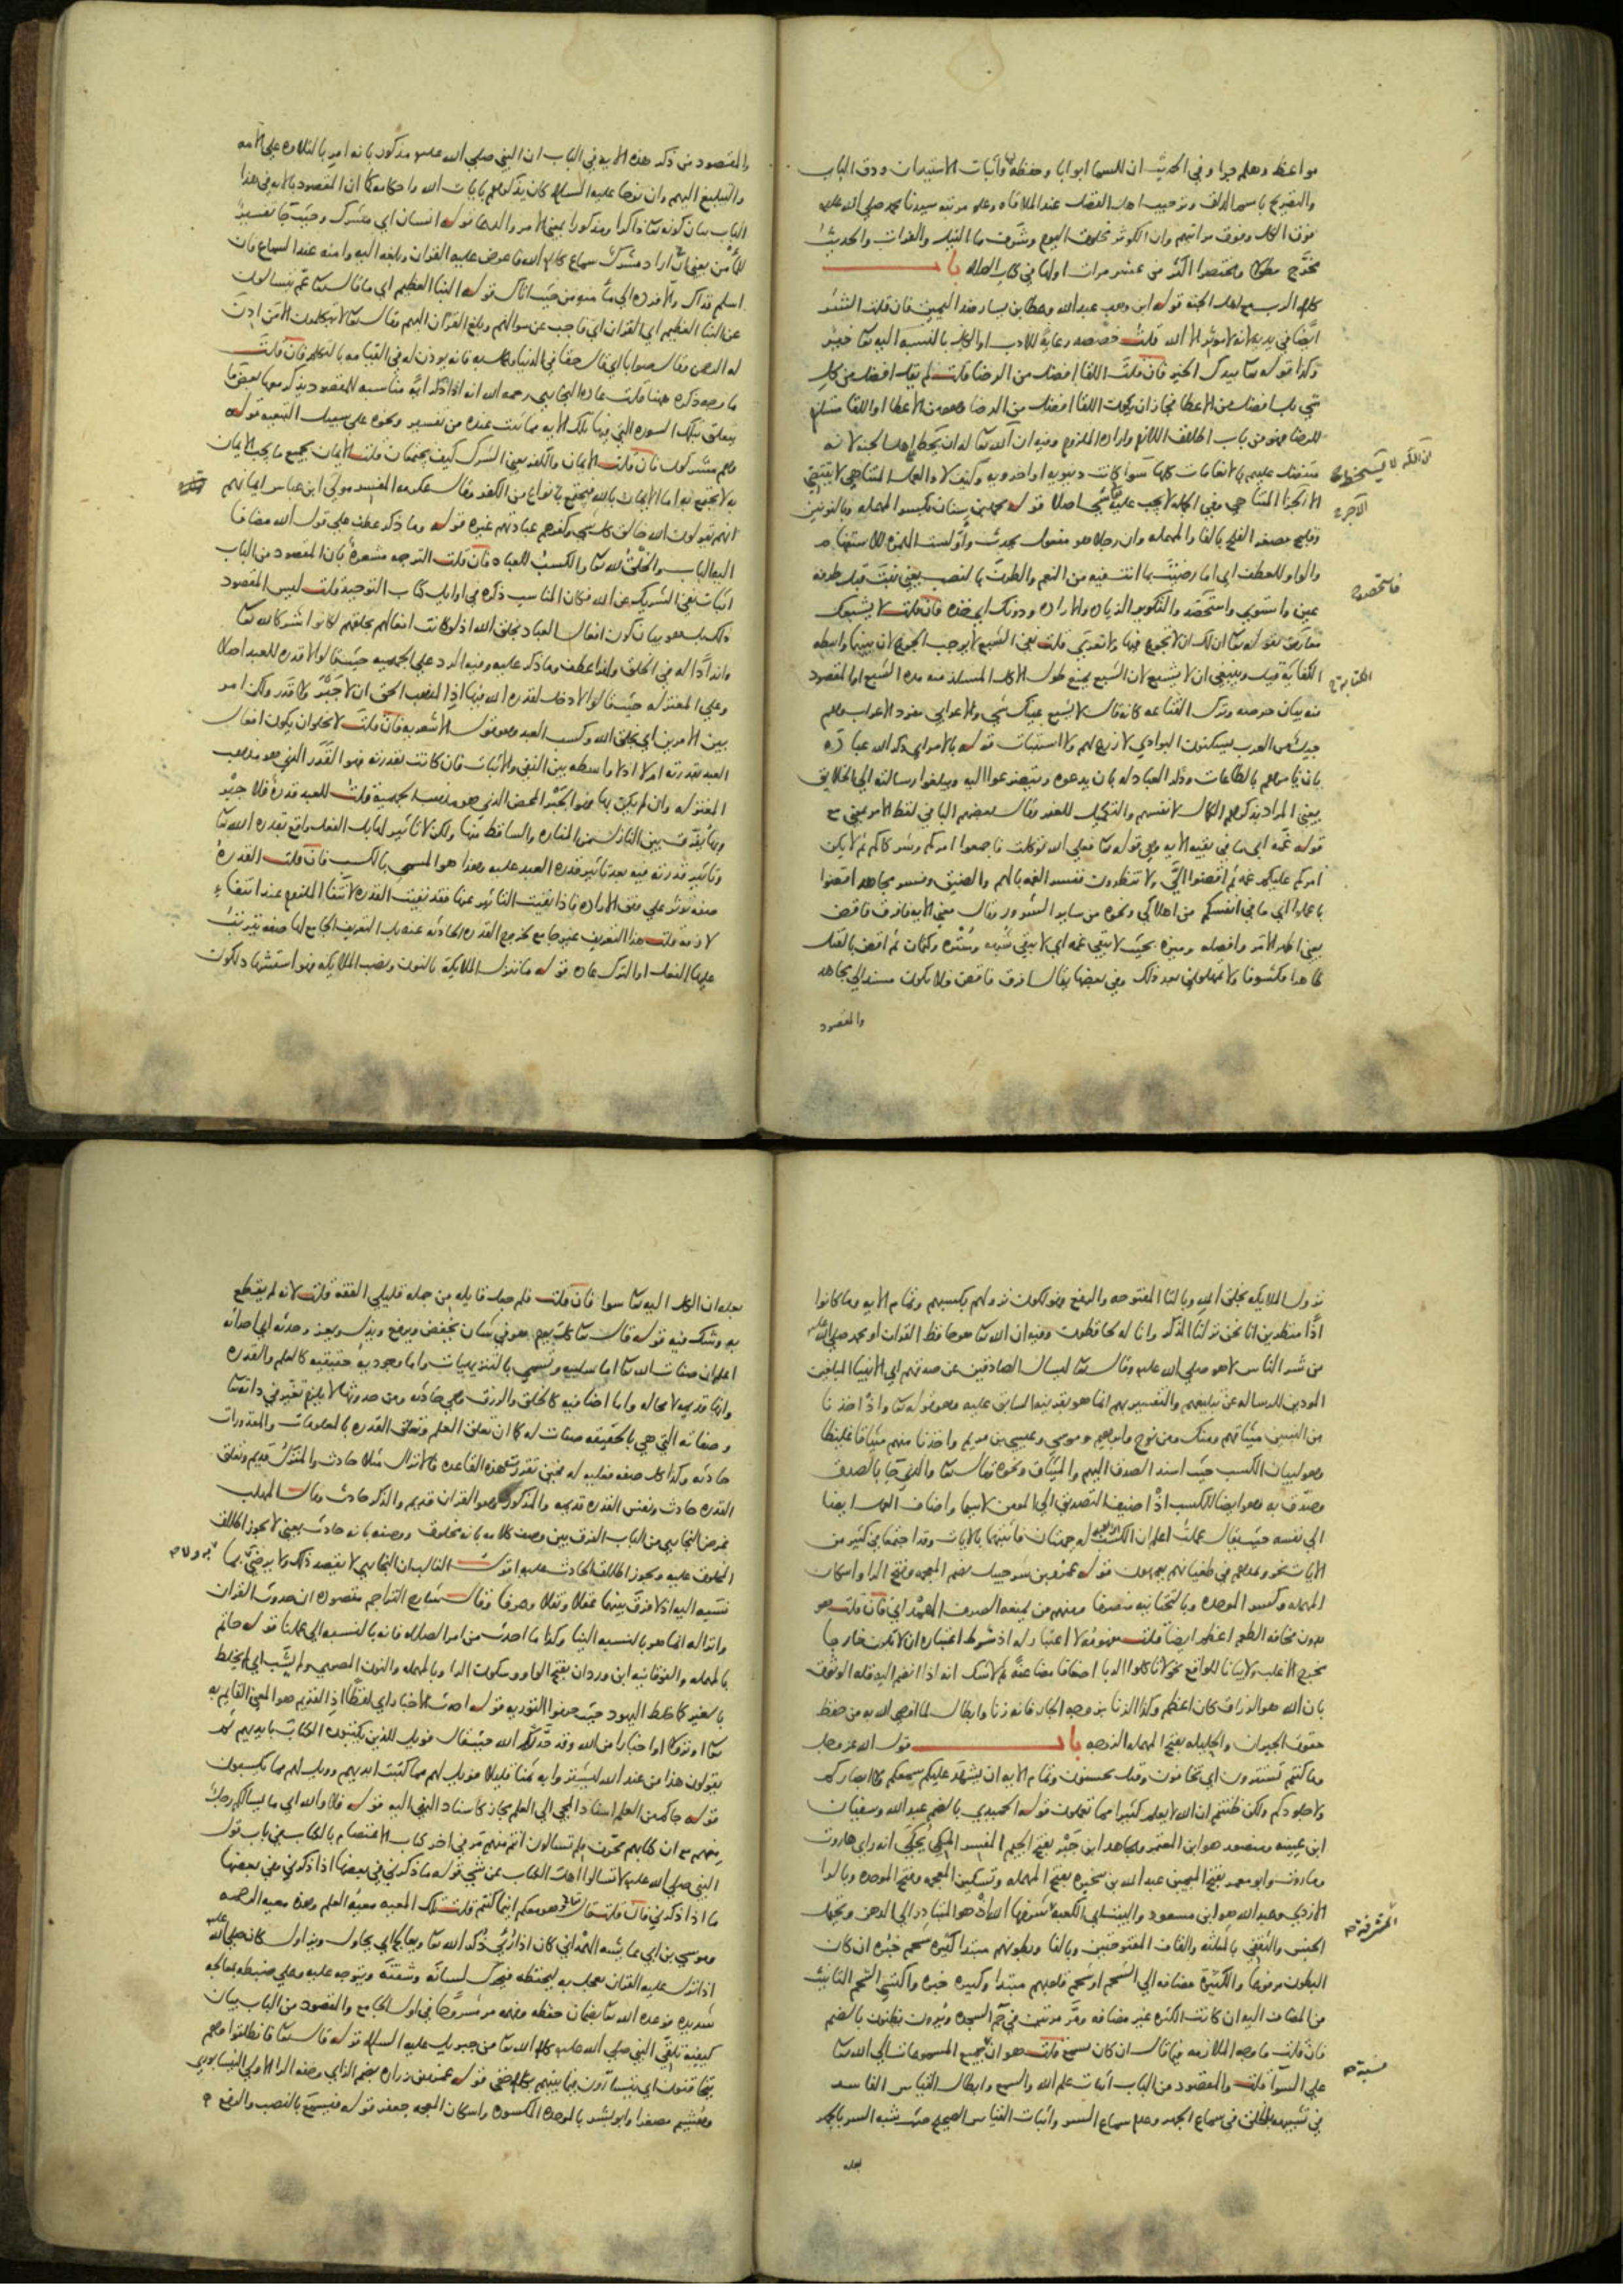 مواعظ وهلم جرا وفي الحديث ان للسما ابوابا وحفظة واثبات الاستيذان ودق الباب
فوق الكل وفوق مراتبهم وان الكوثر مخلوق اليوم
من عشر مرات اولها في كتاب الصلاة باب
كلام الرب مع اهل الجنة قوله ابن وهب عبد الله وعطا بن يسار ضد اليمين فان قلت الشر
ايضا في يديه لانه لا مؤثر الا الله قلت خصصه رعاية للادب او الكل بالنسبة اليه تعا خير
وكذا قوله تعا بيدك الخير فان قلت اللقا افضل من الرضا قلت لم يقل افضل من كل
شي بل افضل من الاعطا فجاز ان يكون اللقا افضل من الرضا وهو من الاعطا او اللقا مستلزم
للرضا فهو من باب اطلاق اللازم وارادة الملزوم وفيه ان الله تعا له ان يسخط على اهل الجنة لانه
متفضل عليهم بالانعامات كلها سوا كانت دنيوية او اخروية وكيف لا والعمل المتناهي لا يقتضي
الا الجزا المتناهي وفي الجملة لا يجب عليه شي اصلا قوله محمد بن سنان بكسر المهملة وبالنونين
وفليح مصغر الفلح بالفا والمهملة وان رجلا هو مفعول يحدث واولست الهمزة للاستفهام
والواو للعطف اي اما رضيت بما انت فيه من النعم والطرف بالنصب يعني نبت قبل طرفة
عين واستوي واستحصد والتكوير الذيان والادارة ودونك اي خذه فان قلت لا يشبعك
معارض لقوله تعا ان لك ان لا تجوع فيها ولا تعري قلت نفي الشبع لا يوجب الجوع لان بينهما واسطة
الكفاية قيل وينبغي ان لا يشبع لان الشبع يمنع طول الاكل المستلذ منه مدة الشبع او المقصود
منه بيان حرصه وترك القناعة كانه قال لا يشبع عينك شي والاعرابي مفرد الاعراب وهم
جيل من العرب يسكنون البوادي لا زرع لهم ولا استنبات قوله بالامر اي ذكر الله عباده
بان يامرهم بالطاعات وذكر العباد له بان يدعوه ويتضرعوا اليه ويبلغوا رسالته الي الخلايق
يعني المراد بذكرهم الكمال لانفسهم والتكميل للغير وقال بعضهم الباء في لفظ الامر بمعني مع
قوله غمة اي ما في بقية الاية وهي قوله تعا فعلي الله توكلت فاجمعوا امركم وشركاكم ثم لا يكن
امركم عليكم غمة ثم اقضوا الي ولا تنظرون تفسير الغمة بالهم والضيق وفسر مجاهد اقضوا
باعملوا اي ما في انفسكم من اهلاكي ونحوه من ساير الشرور وقال معني الاية فافرق فاقض
يعني اظهر الامر وافصله وميزه بحيث لا يبقي غمة اي لا يبقي شبهة وسترة وكتمان ثم اقض بالقتل
ظاهرا مكشوفا ولا تمهلوني بعد ذلك وفي بعضها يقال افرق فاقض فلا يكون مسندا الي مجاهد
والمقصود
فاستحصده
الكفاية
والمقصود من ذكر هذه الاية في الباب ان النبي صلي الله عليه وسلم مذكور بانه امر بالتلاوة علي الامة
والتبليغ اليهم وان نوحا عليه السلام كان يذكرهم بايات الله واحكامه كما ان المقصود بالاية في هذا
الباب بيان كونه تعا ذاكرا ومذكورا بمعني الامر والدعا قوله انسان اي مشرك وحيث جا تفسيرا
لمأمن يعني ان اراد مشرك سماع كلام الله فاعرض عليه القران وبلغه اليه وامنه عند السماع فان
اسلم فذاك والا فرده الي مأمنه من حيث اتاك قوله النبا العظيم اي ما قال تعا عم يتسالون
عن النبا العظيم اي القران اي فاجب عن سوالهم وبلغ القران اليهم وقال تعا لا يتكلمون الا من اذن
له الرحمن وقال صوابا اي قال حقا في الدنيا وعمل به فانه يوذن له في القيامة بالتكلم فان قلت
ما وجه ذكره ههنا قلت عادة البخاري رحمه الله انه اذا ذكر اية مناسبة للمقصود يذكر معها بعض ما
يتعلق بتلك السورة التي فيها تلك الاية مما ثبت عنده من تفسير ونحوه علي سبيل التبعية قوله
وهم مشركون فان قلت الايمان والكفر يعني الشرك كيف يجتمعان قلت الايمان بجميع ما يجب الايمان
به لا يجتمع به اما الايمان بالله فيجتمع بانواع من الكفر وقال عكرمة المفسر مولي ابن عباس ايمانهم
انهم يقولون الله خالق كل شي وكفرهم عبادتهم غيره قوله وما ذكر عطف علي قول الله مضافا
اليه الباب والخلق لله تعا والكسب للعباد فان قلت الترجمة مشعرة بان المقصود من الباب
اثبات نفي الشريك عن الله فكان المناسب ذكره في اوايل كتاب التوحيد قلت ليس المقصود
ذلك بل هو بيان كون افعال العباد بخلق الله اذ لو كانت افعالهم بخلقهم لكانوا شركا لله تعا
واندادا له في الخلق ولهذا عطف وما ذكر عليه وفيه الرد علي الجهمية حيث قالوا لا قدرة للعبد اصلا
وعلي المعتزلة حيث قالوا لا دخل لقدرة الله فيها اذ المذهب الحق ان لا جبر ولا قدر ولكن امر
بين الامرين اي بخلق الله وكسب العبد وهو قول الاشعرية فان قلت لا يخلو ان يكون افعال
العبد بقدرته ام لا اذ لا واسطة بين النفي والاثبات فان كانت بقدرته فهو القدر الذي هو مذهب
المعتزلة وان لم يكن بها فهو الجبر المحض الذي هو مذهب الجهمية قلت للعبد قدرة فلا جبر
وبها يفرق بين النازل من المنارة والساقط منها ولكن لا تاثير لها بل الفعل واقع بقدرة الله تعا
وتاثير قدرته فيه بعد تاثير قدرة العبد عليه وهذا هو المسمي بالكسب فان قلت القدرة
صفة تؤثر علي وفق الارادة فاذا نفيت التاثير عنها فقد نفيت القدرة لانتفا الملزوم عند انتفاء
لازمه قلت هذا التعريف غير جامع لخروج القدرة الحادثة عنه بل التعريف الجامع لها صفة يترتب
عليها الفعل او الترك عادة قوله ما تنزل الملايكة بالنون ونصب الملايكة فهو استشهاد لكون
نزول الملايكة بخلق الله وبالتا المفتوحة والرفع فهو لكون نزولهم بكسبهم وتمام الاية وما كانوا
اذا منظرين انا نحن نزلنا الذكر وانا له لحافظون وفيه ان الله تعا هو حافظ القران لا محمد صلي الله عليه
من شر الناس لا هو صلي الله عليه وقال تعا ليسأل الصادقين عن صدقهم اي الانبيا المبلغين
المودين للرسالة عن تبليغهم والتفسير بهم انما هو بقرينة السابق عليه وهو قوله تعا واذ اخذنا
من النبيين ميثاقهم ومنك ومن نوح وابراهيم وموسي وعيسي بن مريم واخذنا منهم ميثاقا غليظا
وهو لبيان الكسب حيث اسند الصدق اليهم والميثاق ونحوه وقال تعا والذي جا بالصدق
وصدق به وهو ايضا للكسب اذ اضيف التصديق الي المومن لا سيما واضاف العمل ايضا
الي نفسه حيث يقال عملت اعلم ان الكسب له جهتان فاثبتهما بالايات وقد اجتمعا في كثير من
الايات نحو ويمدهم في طغيانهم يعمهون قوله عمرو بن شرحبيل بضم المعجمة وفتح الرا واسكان
المهملة وكسر الموحدة وبالتحتانية منصرفا ومنهم من يمنعه الصرف الهمداني فان قلت هو
بدون مخافة الطعم اعظم ايضا قلت مفهومه لا اعتبار له اذ شرط اعتباره ان لا يكون خارجا
مخرج الاغلب ولا بيانا للواقع نحو لا تاكلوا الربا اضعافا مضاعفة ثم لا شك انه اذا انضم اليه قلة الوثوق
بان الله هو الرزاق كان اعظم وكذا الزنا بزوجة الجار فانه زنا وابطال لما اوصي الله به من حفظ
حقوق الجيران والحليلة بفتح المهملة الزوجة باب قول الله عز وجل
وما كنتم تستترون اي تخافون وقيل تحسبون وتمام الاية ان يشهد عليكم سمعكم ولا ابصاركم
ولا جلودكم ولكن ظننتم ان الله لا يعلم كثيرا مما تعملون قوله الحميدي بالضم عبد الله وسفيان
ابن عيينة ومنصور هو ابن المعتمر ومجاهد ابن جبر بفتح الجيم المفسر المكي يحكي انه راي هاروت
وماروت وابو معمر بفتح الميمين عبد الله بن سخبرة بفتح المهملة وتسكين المعجمة وفتح الموحدة وبالرا
الازدي وعبد الله هو ابن مسعود والبيت اي الكعبة شرفها الله اذ هو المتبادر الي الذهن ويحتمل
الجنس والثقفي بالمثلثة والقاف المفتوحتين وبالفا وبطونهم مبتدا كثيرة شحم خبره ان كان
البطون مرفوعا والكثيرة مضافة الي الشحم او شحم بطونهم مبتدا وكثيرة خبره واكتسي الشحم التانيث
من المضاف اليه ان كانت الكثرة غير مضافة ومر مرتين في حم السجدة ويروون يظنون بالضم
فان قلت ما وجه الملازمة فيما قال ان كان يسمع قلت هو ان جميع المسموعات الي الله تعا
علي السوا قلت والمقصود من الباب اثبات علم الله والسمع وابطال القياس الفاسد
في تشبيهه بالخلق في سماع الجهر وعدم سماع السر واثبات القياس الصحيح حيث شبه السر بالجهر
بعلة
المشرفة
نسبة
بعلة ان الكل اليه تعا سوا فان قلت فلم جعل قايله من جملة قليلي الفقه قلت لانه لم يقطع
به وشك فيه قوله قال تعا كل يوم هو في شان يخفض ويرفع ويذل ويعز وحدثه اي احداثه
اعلم ان صفات الله تعا اما سلبية وتسمي بالتنزيهات واما وجودية حقيقية كالعلم والقدرة
وانها قديمة لا محالة واما اضافية كالخلق والرزق وهي حادثة ومن حدوثها لا يلزم تغير في ذاته تعا
وصفاته التي هي بالحقيقة صفات له كما ان تعلق العلم وتعلق القدرة بالمعلومات والمقدورات
حادثة وكذا كل صفة فعلية له فحين تقررت هذه القاعدة فالانزال مثلا حادث والمنزل قديم وتعلق
القدرة حادث ونفس القدرة قديمة والمذكور وهو القران قديم والذكر حادث وقال المهلب
غرض البخاري من الباب الفرق بين وصف كلامه بانه مخلوق ووصفه بانه حادث يعني لا يجوز اطلاق
المخلوق عليه ويجوز اطلاق الحادث عليه اقول الغالب ان البخاري لا يقصد ذلك ولا يرضي بما
نسبه اليه اذ لا فرق بينهما عقلا ونقلا وعرفا وقال شارح التراجم مقصوده ان حدوث القران
وانزاله انما هو بالنسبة الينا وكذا ما احدث من امر الصلاة فانه بالنسبة الي عملنا قوله حاتم
بالمهملة والفوقانية ابن وردان بفتح الواو وسكون الرا وبالمهملة والنون المصري ولم يشب اي لم يخلط
بالغير كما خلط اليهود حيث حرفوا التورية قوله احدث الاخبار اي لفظا اذ القديم هو المعني القايم به
تعا او نزولا او اخبارا من الله وقد حدثكم الله حيث قال فويل للذين يكتبون الكتاب بايديهم ثم
يقولون هذا من عند الله ليشتروا به ثمنا قليلا فويل لهم مما كتبت ايديهم وويل لهم مما يكسبون
قوله جاكم من العلم اسناد المجي الي العلم مجاز كاسناد النهي اليه قوله فلا والله اي ما يسالكم رجل
منهم مع ان كتابهم محرف فلم تسالون انتم منهم مر في اخر كتاب الاعتصام بالكتاب في باب قول
النبي صلي الله عليه لا تسالوا اهل الكتاب عن شي قوله ما ذكرني في بعضها اذا ذكرني وفي بعضها
ما اذا ذكرني فان قلت قال تعا وهو معكم اينما كنتم قلت تلك المعية معية العلم وهذه معية الرحمة
وموسي بن ابي عايشة الهمداني كان اذا رئي ذكر الله تعا ويعالج اي يحاول ويزاول كان صلي الله عليه
اذا نزل عليه القران يعجل به ليحفظه فيحرك لسانه وشفتيه ويتوجه عليه وعلي ضبطه بمعالجة
شديدة فوعده الله تعا بضمان حفظه وفهمه مر مشروحا في اول الجامع والمقصود من الباب بيان
كيفية تلقي النبي صلي الله عليه كلام الله تعا من جبريل عليه السلام قوله قال تعا فانطلقوا وهم
يتخافتون اي يتسارون فيما بينهم بكلام خفي قوله عمرو بن زرارة بضم الزاي وخفة الرا الاولي النيسابوري
وهشيم مصغرا وابو بشر بالموحدة المكسورة واسكان المعجمة جعفر قوله فيسمع بالنصب والرفع